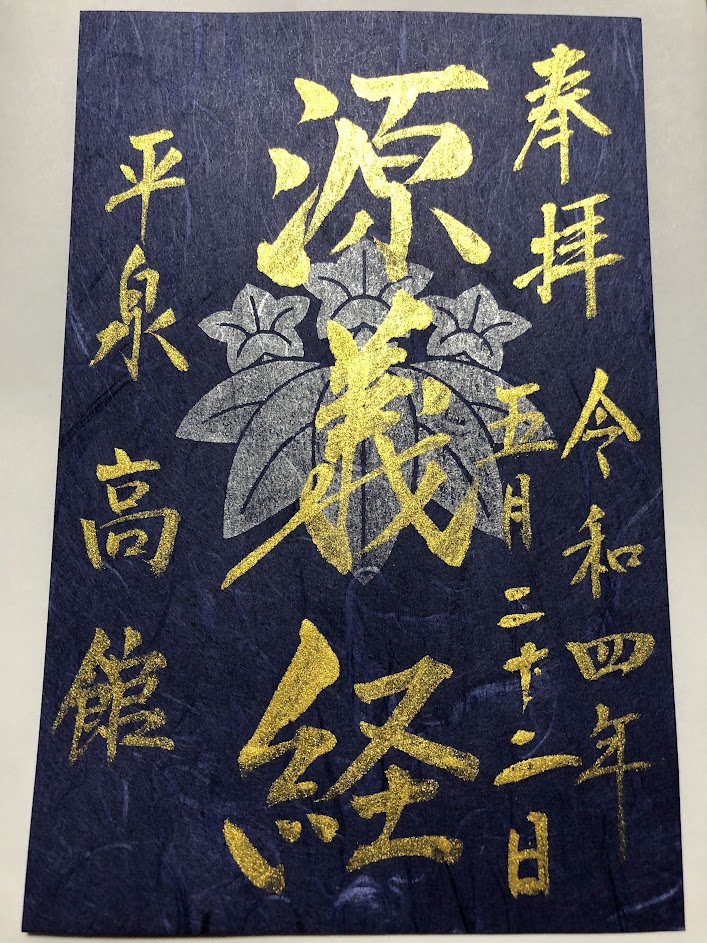 奉拝
令和四年
五月二十二日
源義経
平泉
高館